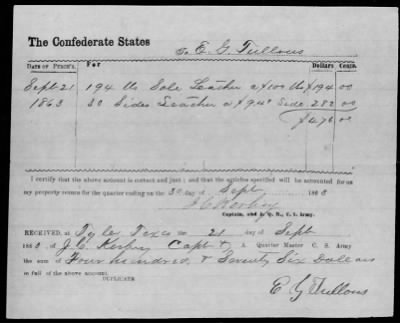 The Confederate States
To E. G. Tullous
DATE OF PURCH'S. For Dollars Cents.
Sept 21 194 lbs Sole Leather @ 100 lb $194 00
1863 30 Sides Leather @ $940 Side 282 00
$476 00
I certify that the above account is correct and just; and that the articles specified will be accounted for on
my property return for the quarter ending on the 30 day of Sept 1863
J C Kerbey
Captain, and A. Q. M., C. S. Army.
RECEIVED, at Tyler Texas 21 day of Sept
1863, of J. C. Kerbey Capt & A. Quarter Master C. S. Army
the sum of Four hundred & Seventy Six Dollars
in full of the above account.
DUPLICATE
E G Tullous